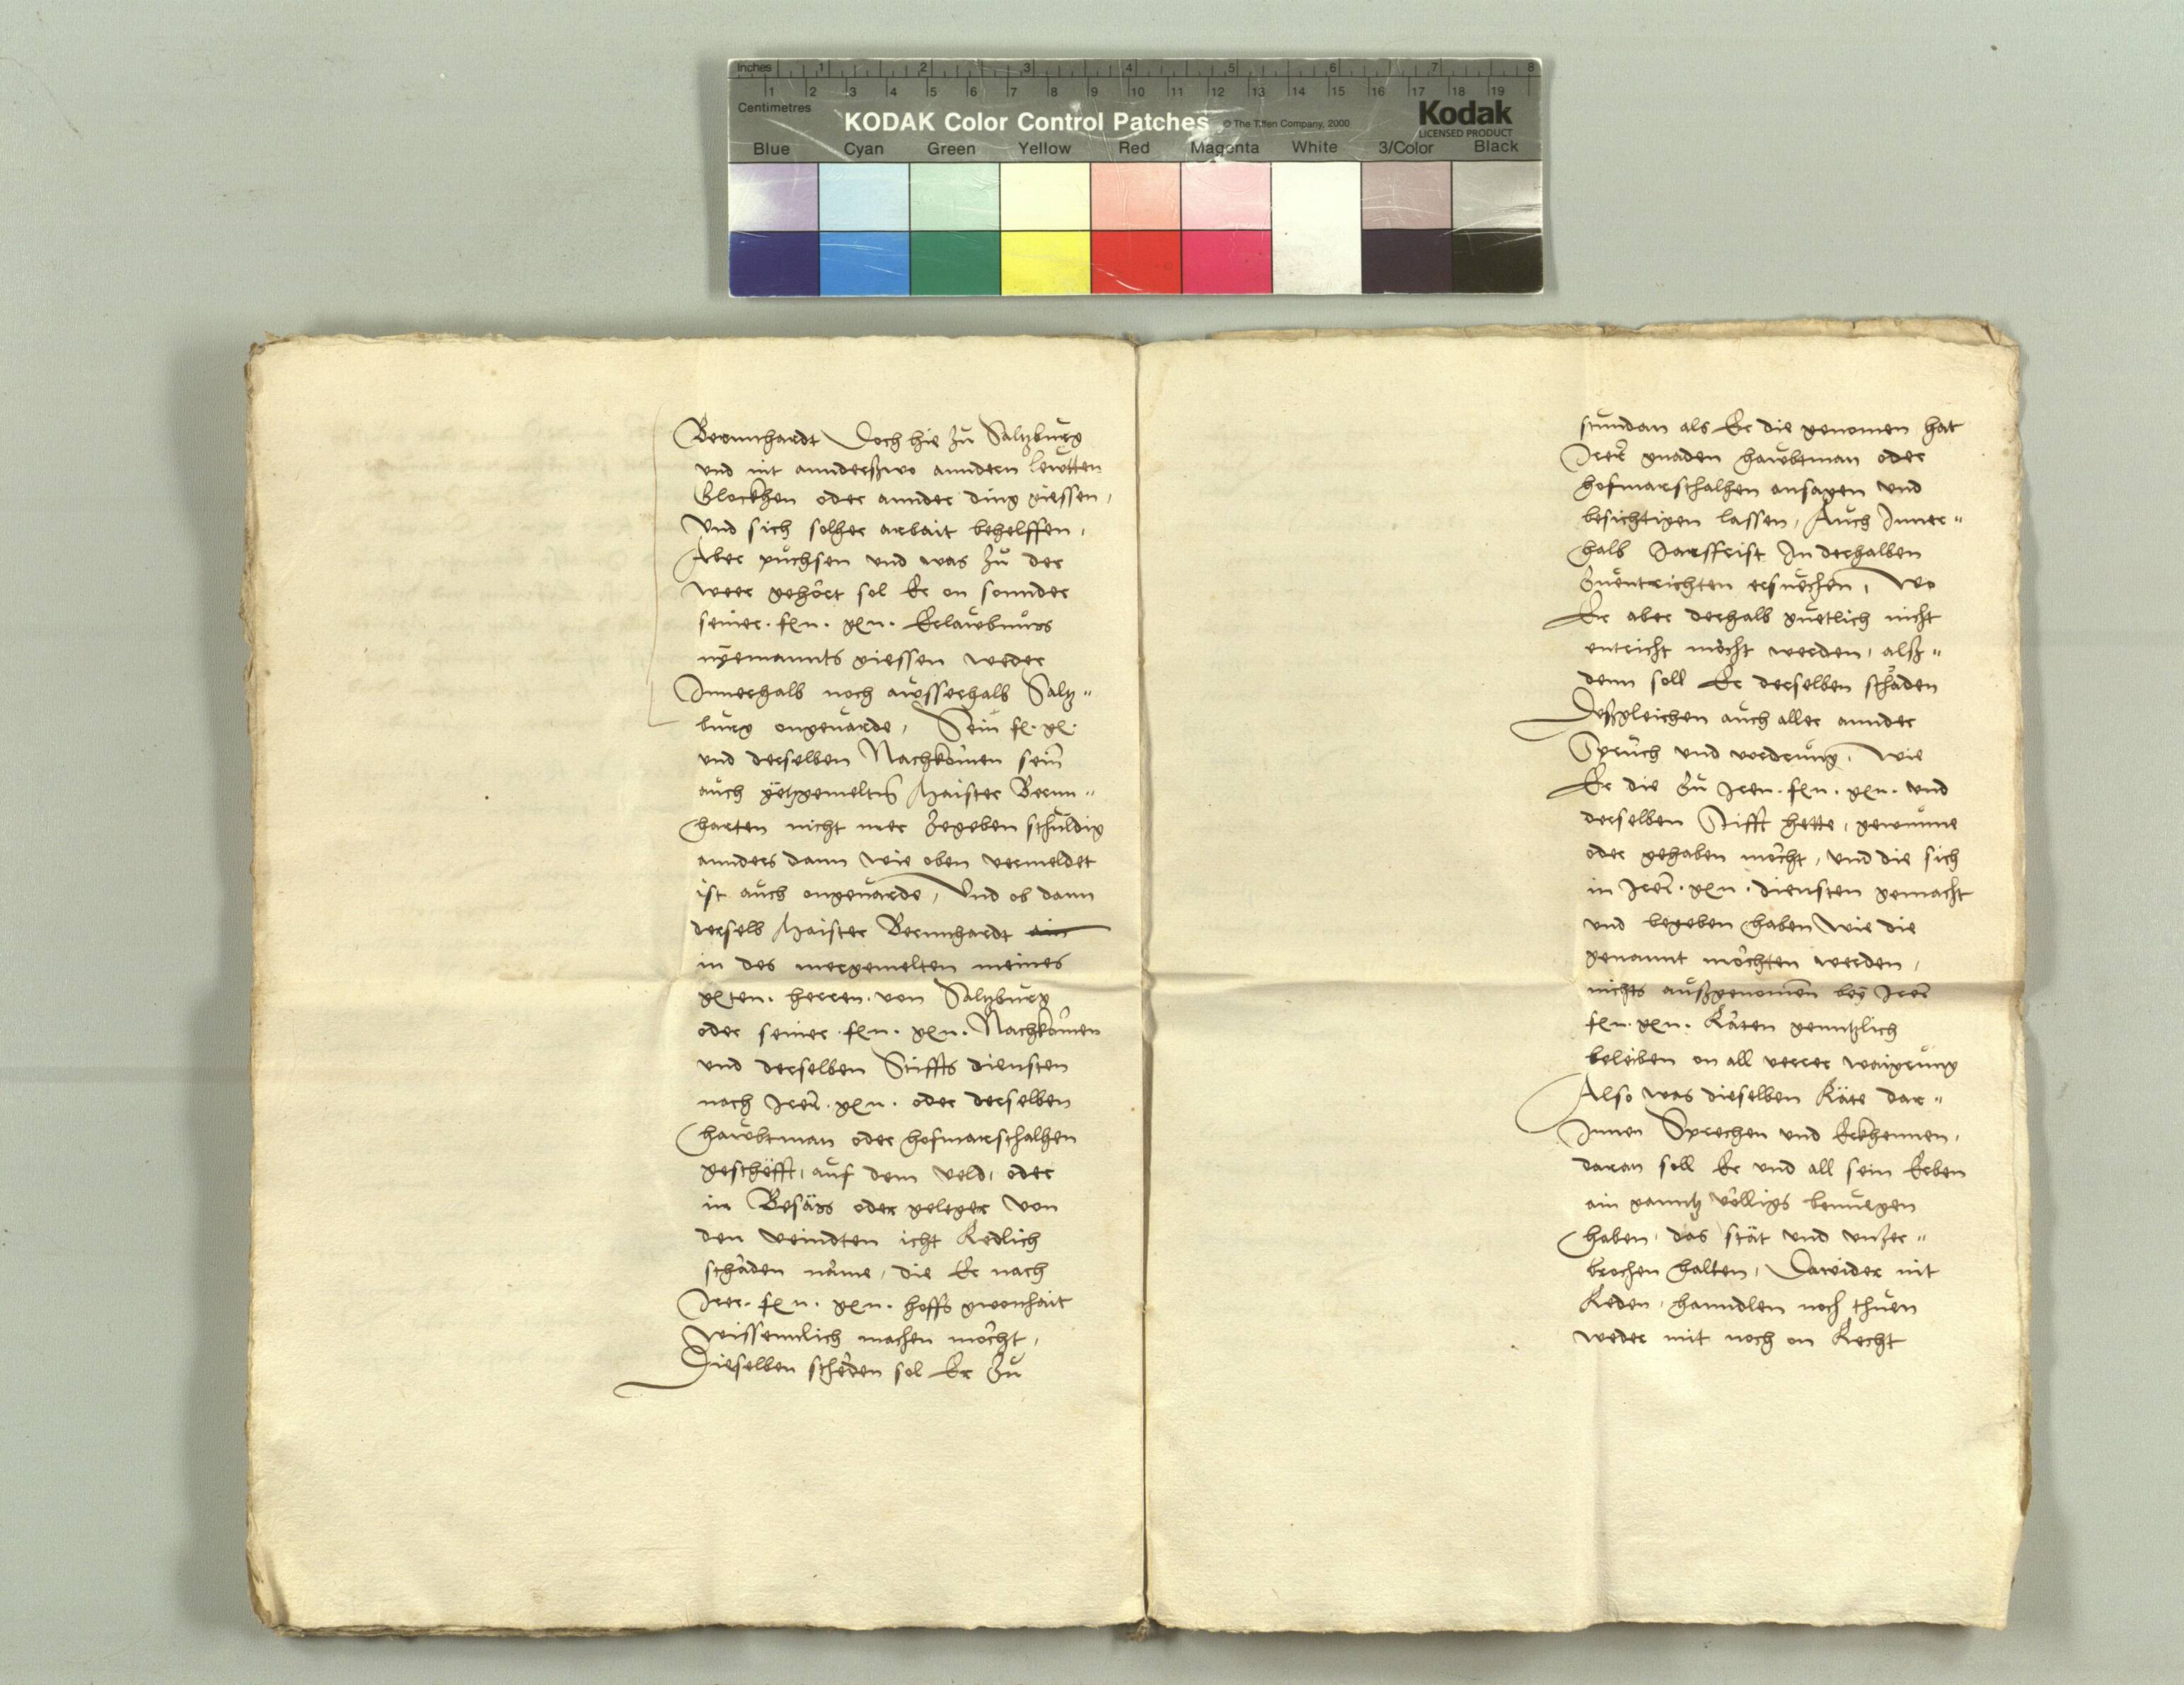 Inches 1 2 3 4 5 6 7 8
1 2 3 4 5 6 7 8 9 10 11 12 13 14 15 16 17 18 19
Centimetres
KODAK Color Control Patches © The Tiffen Company, 2000 Kodak
LICENSED PRODUCT
Blue Cyan Green Yellow Red Magenta White 3/Color Black
Bernnhardt Doch hie zu Saltzburg
vnd nit annderßwo anndern lewtten
Glockhen oder annder ding giessen,
Vnd sich solher arbait behelffen,
Aber puchsen vnd was zu der
weer gehört sol Er on sonnder
seiner. fln. gln. Erlawbnuss
nyemannts giessen weder
Innerhalb noch awsserhalb Saltz"
burg ongeuärde, Sein fl. gl.
vnd derselben Nachkomen sein
auch yetzgemeltn Maister Bernn"
harten nicht mer zegeben schuldig
annders dann wie oben vermeldet
ist auch ongeuärde, Vnd ob dann
derselb Maister Bernnhardt ain
in des mergemelten meines
glten. herren. von Saltzburg
oder seiner. fln. gln. Nachkomen
vnd derselben Stiffts diensten
nach Irer. gln. oder derselben
hawbtman oder hofmarschalhen
geschefft, auf dem veld, oder
in Besäss oder geleger von
den veindten icht Redlich
schäden näme, die Er nach
Irer. fln. gln. hoffs gwonhait
wissennlich machen möcht,
Dieselben scheden sol Er zu
stundan als Er die genomen hat
Irer gnaden hawbtman oder
hofmarschalhen ansagen vnd
besichtigen lassen, Auch Inner"
halb Jarsfrist In derhalben
zuentrichten ersuechen, Wo
Er aber derhalb guetlich nicht
entricht möcht werden, alß"
denn soll Er derselben schäden
Deßgleichen auch aller annder
Spruch vnd vordrung, wie
Er die zu Iren. fln. gln. vnd
derselben Stifft hette, gewunne
oder gehaben möcht, vnd die sich
in Irer. gln. diensten gemacht
vnd begeben haben Wie die
genannt möchten werden,
nichts außgenomen bey Irer
fln. gln. Räten genntzlich
beleiben on all verrer waigrung
Also was dieselben Räte dar"
Innen Sprechen vnd Erkhennen,
daran soll Er vnd all sein Erben
ain ganntz völligs benuegen
haben, das stät vnd vnzer"
brochen halten, Dawider nit
Reden, hanndlen noch thuen
weder mit noch on Recht